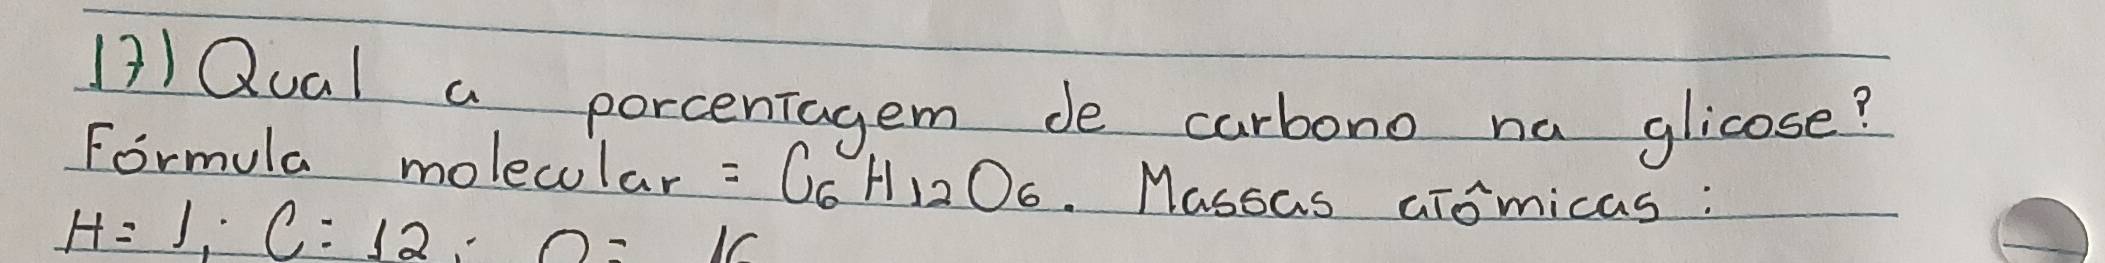 17) Qual a porcentagem de carbono na glicose?
Fórmula molecular = C6H12O6. Massas atômicas:
H = 1; C = 12; O = 16